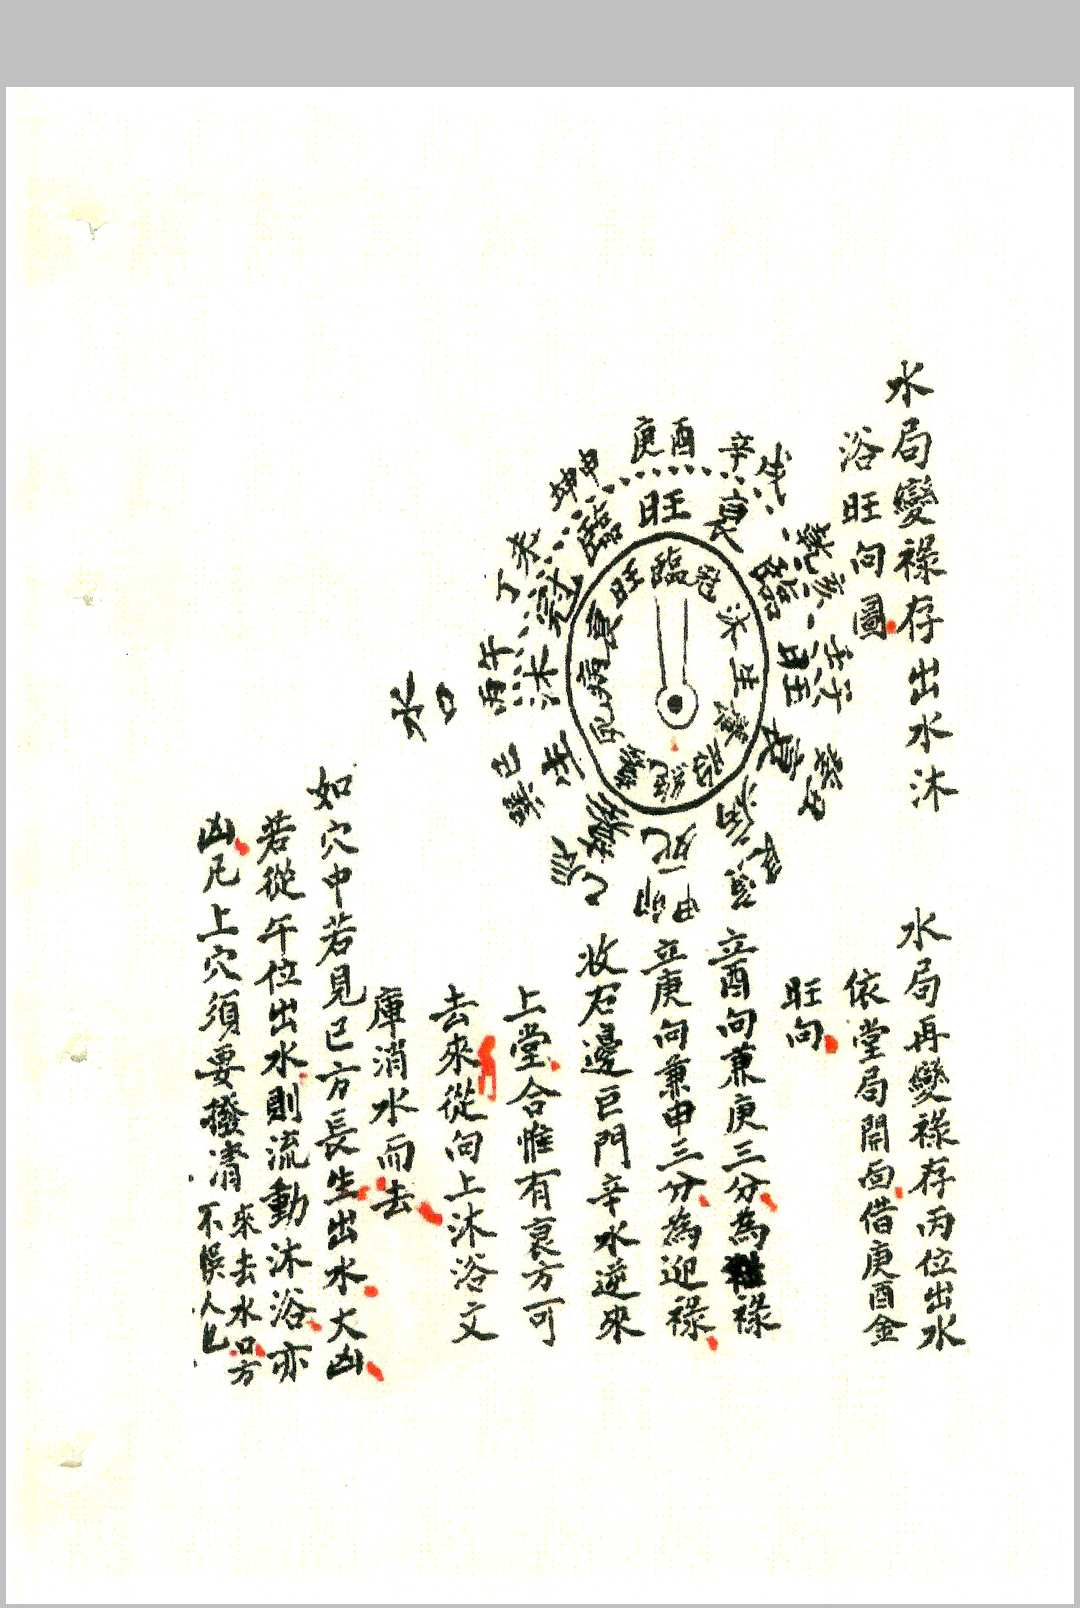 水局變祿存出水沐
浴旺向圖
水局再變祿存丙位出水
依堂局開面借庚酉金
旺向
立酉向兼庚三分為祿
立庚向兼申三分為迎祿
收右邊巨門辛水逆來
上堂合惟有衰方可
去來從向上沐浴文
庫消水而去
如穴中若見巳方長生出水大凶
若從午位出水則流動沐浴亦
凶凡上穴須要撥清
來去水口方
不悮人也
庚酉
辛戌
乾亥
壬子
癸丑
艮寅
甲卯
乙辰
巽巳
丙午
丁未
坤申
旺
衰
臨
旺
衰
病
死
生
沐
冠
臨
臨
冠
沐
生
養
胎
絕
墓
死
病
衰
旺
水口